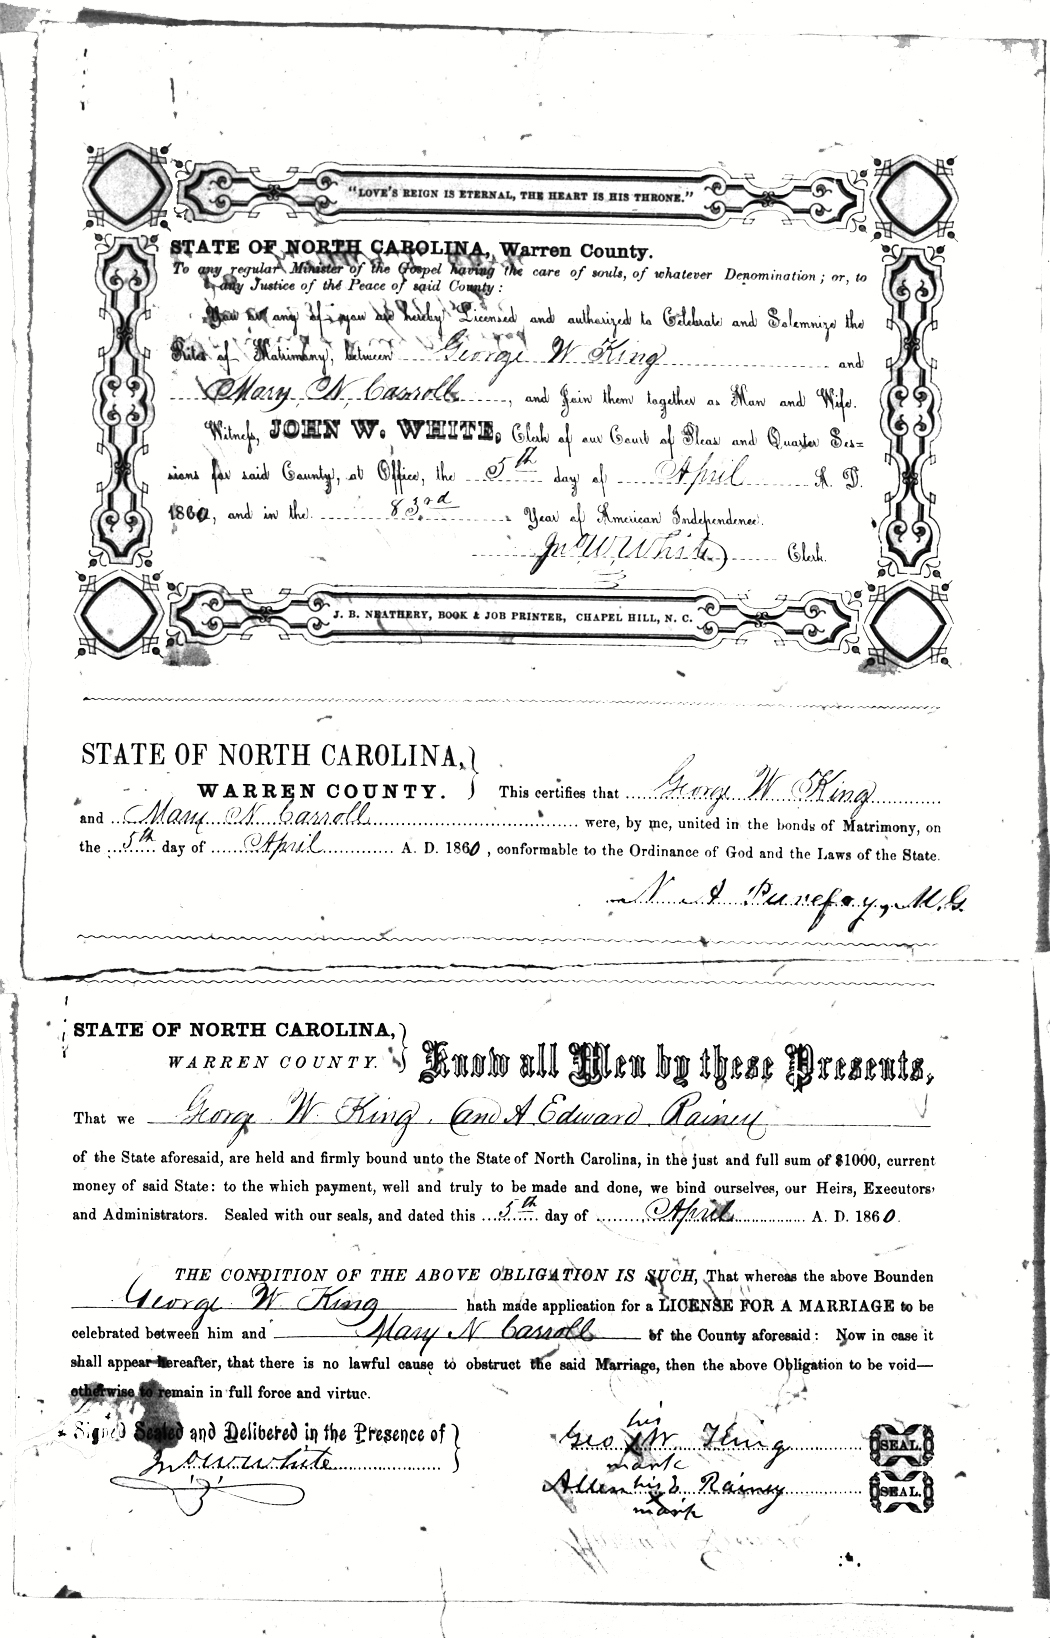 "LOVE'S REIGN IS ETERNAL, THE HEART IS HIS THRONE."
STATE OF NORTH CAROLINA, Warren County.
To any regular Minister of the Gospel having the care of souls, of whatever Denomination; or, to
any Justice of the Peace of said County:
You or any of you are hereby Licensed and authorized to Celebrate and Solemnize the
Rites of Matrimony, between George W King and
Mary N. Carroll, and Join them together as Man and Wife.
Witness, JOHN W. WHITE, Clerk of our Court of Pleas and Quarter Ses=
sions for said County, at Office, the 5th day of April A. D.
1860, and in the 83rd Year of American Independence.
Jno W. White Clerk.
J. B. NEATHERY, BOOK & JOB PRINTER, CHAPEL HILL, N. C.
STATE OF NORTH CAROLINA,
WARREN COUNTY. This certifies that George W King
and Mary N Carroll were, by me, united in the bonds of Matrimony, on
the 5th day of April A. D. 1860, conformable to the Ordinance of God and the Laws of the State.
N A Purefoy, M.G.
STATE OF NORTH CAROLINA,
WARREN COUNTY. Know all Men by these Presents,
That we George W King. and A Edward Rainey
of the State aforesaid, are held and firmly bound unto the State of North Carolina, in the just and full sum of $1000, current
money of said State: to the which payment, well and truly to be made and done, we bind ourselves, our Heirs, Executors,
and Administrators. Sealed with our seals, and dated this 5th day of April A. D. 1860.
THE CONDITION OF THE ABOVE OBLIGATION IS SUCH, That whereas the above Bounden
George W King hath made application for a LICENSE FOR A MARRIAGE to be
celebrated between him and Mary N Carroll of the County aforesaid: Now in case it
shall appear hereafter, that there is no lawful cause to obstruct the said Marriage, then the above Obligation to be void—
otherwise to remain in full force and virtue.
Signed Sealed and Delibered in the Presence of
Jno W White
his
Geo X W. King SEAL.
mark
Allen his E Rainey SEAL.
X
mark